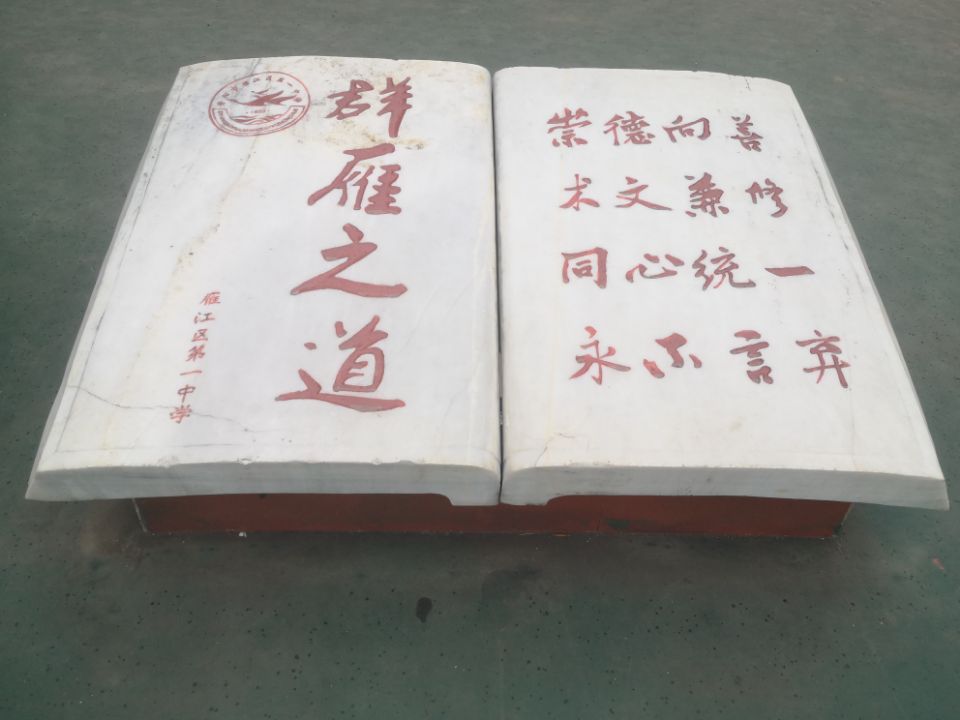 群雁之道
雁江区第一中学
崇德向善
术文兼修
同心统一
永不言弃